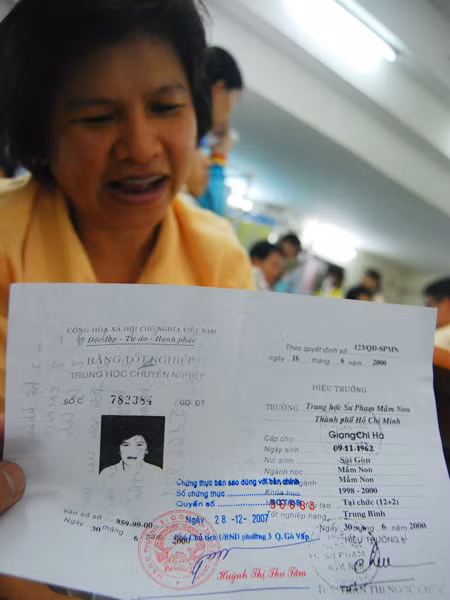 CỘNG HÒA XÃ HỘI CHỦ NGHĨA VIỆT NAM
Độc lập - Tự do - Hạnh phúc
BẰNG TỐT NGHIỆP
TRUNG HỌC CHUYÊN NGHIỆP
SỐ C 782384 /GD-ĐT
Vào sổ số 859-99-00
Ngày 30 tháng 6 năm 2000
Theo quyết định số 123/QĐ-SPMN
ngày 16 tháng 6 năm 2000
HIỆU TRƯỞNG
TRƯỜNG Trung học Sư Phạm Mầm Non
Thành phố Hồ Chí Minh
Cấp cho Giang Chi Hà
Ngày sinh 09-11-1962
Nơi sinh Sài Gòn
Ngành học Mầm Non
Mầm Non
Khóa học 1998 - 2000
Tại chức (12+2)
Tốt nghiệp hạng Trung Bình
Ngày 30 tháng 6 năm 2000
HIỆU TRƯỞNG
Chứng thực bản sao đúng với bản chính
Số chứng thực
Quyển số
Ngày 28 -12- 2007
Chủ tịch UBND phường 3 Q. Gò Vấp
Huỳnh Thị Thu Tâm
TRẦN THỊ NGỌC